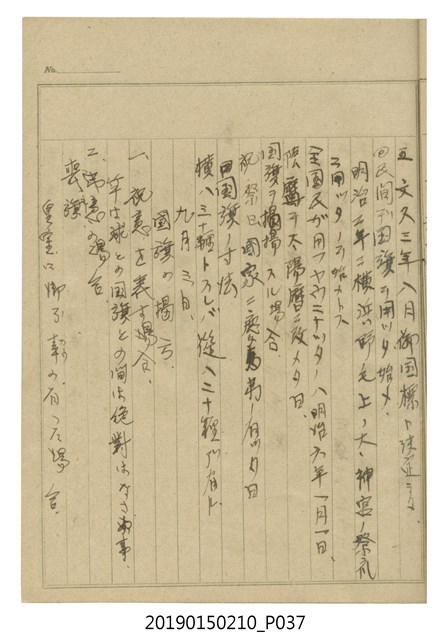 No.
五 文久三年八月御国標ト
㈣民間デ国旗ヲ用ヒタ始メ.
明治二年ニ横浜ノ野毛上ノ大神宮ノ祭礼
ニ用ヒタノヲ始メトス
全国民ガ用フヤウニナツタノハ明治六年一月一日、
陰暦ヲ太陽暦ニ改メタ日.
国旗ヲ掲揚スル場合
祝祭日 国家ニ慶弔ノ有ツタ日
国旗ノ寸法
横ハ三十糎トスレバ縦ハ二十糎デ有ル
九月三日、
国旗の揚げ方
一、祝意を表す場合、
竿は球との国旗との間は絶対はなさぬ事、
二、弔意の場合
喪旗
皇室に御不幸の有つた場合.
20190150210_P037